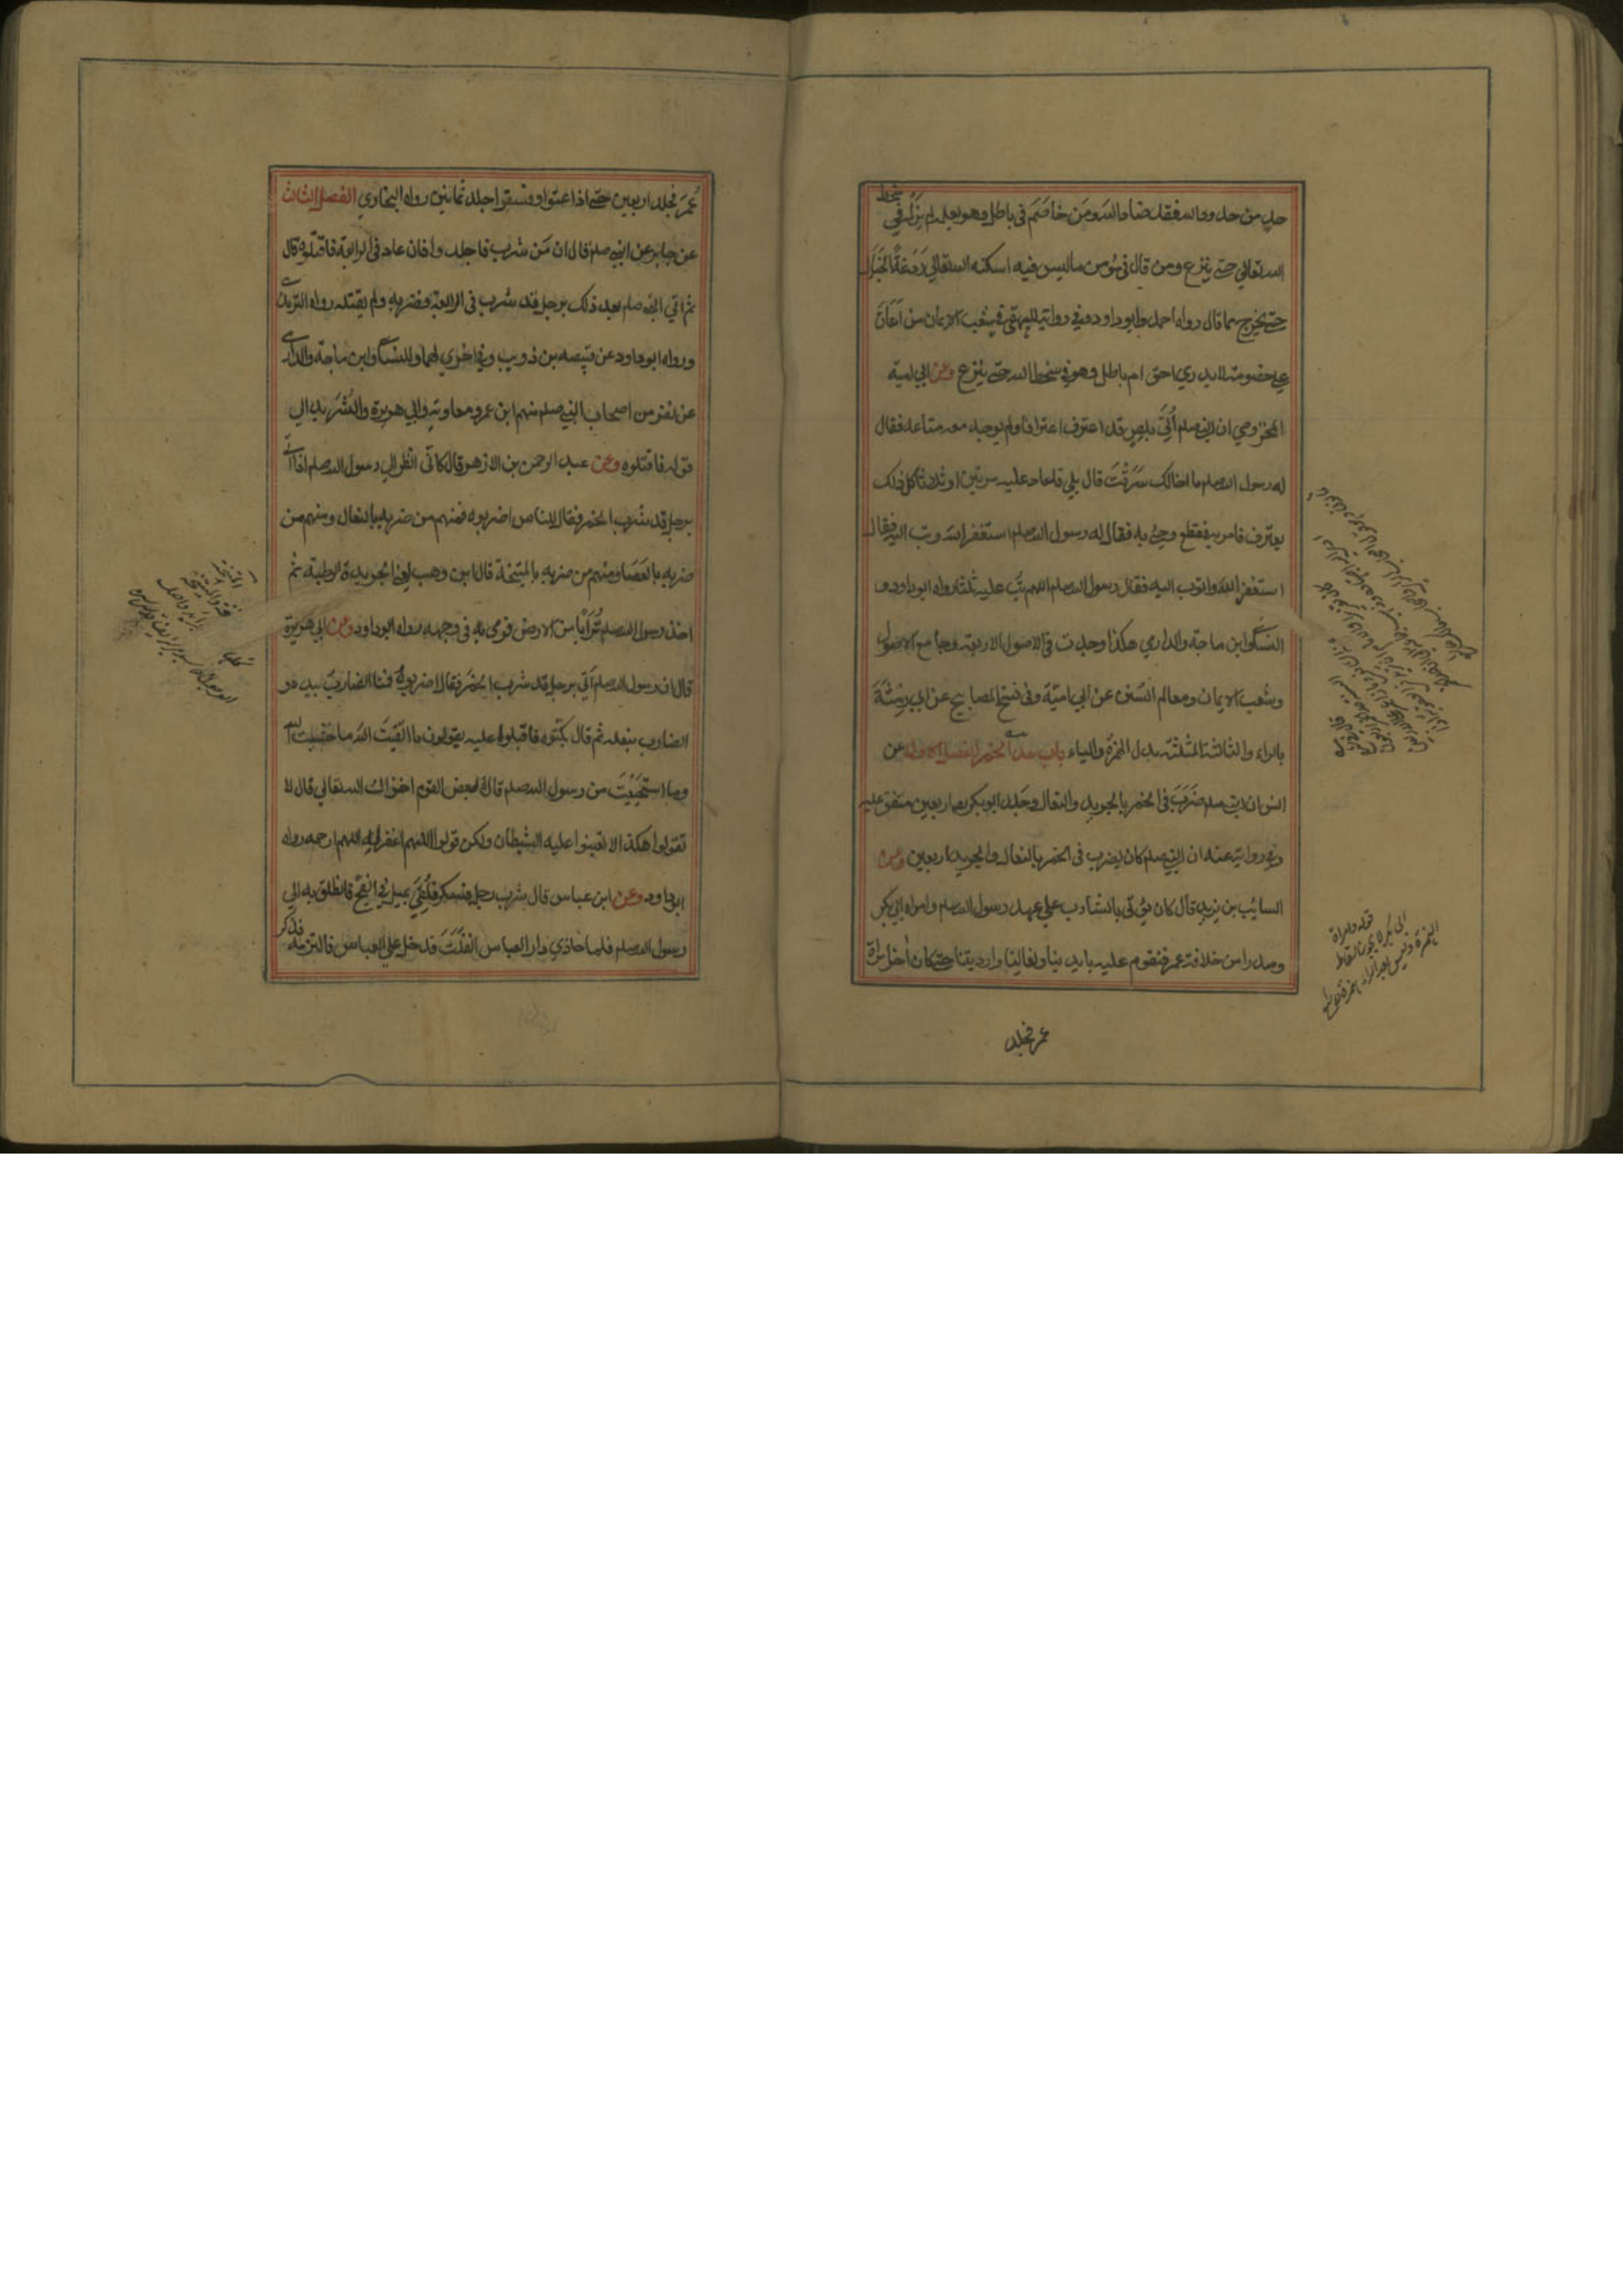 حد من حدود الله فقد ضاد الله ومن خاصم في باطل وهو يعلم لم يزل في سخط
الله تعالى حتى ينزع ومن قال في مؤمن ما ليس فيه اسكنه الله تعالى ردغة الخبال
حتى يخرج مما قال رواه احمد وابو داود وفي رواية للبيهقي في شعب الايمان من اعان
على خصومة لا يدري احق ام باطل وهو في سخط الله حتى ينزع وعن ابي امية
المخزومي ان النبي صلعم اُتي بلص قد اعترف اعترافا ولم يوجد معه متاع فقال
له رسول الله صلعم ما اخالك سرقت قال بلى فاعاد عليه مرتين او ثلاثا كل ذلك
يعترف فامر به فقطع وجئ به فقال له رسول الله صلعم استغفر الله وتب اليه فقال
استغفر الله واتوب اليه فقال رسول الله صلعم اللهم تب عليه ثلثا رواه ابو داود و
النسائي وابن ماجة والدارمي هكذا وجدت في الاصول الاربعة وجامع الاصول
وشعب الايمان ومعالم السنن عن ابي امية وفي نسخ المصابيح عن ابي رمثة
بالراء والثاء المثلثة بدل الهمزة والياء باب حد الخمر الفصل الاول عن
انس ان النبي صلعم ضرب في الخمر بالجريد والنعال وجلد ابو بكر اربعين متفق عليه
وفي رواية عنه ان النبي صلعم كان يضرب في الخمر بالنعال والجريد اربعين وعن
السايب بن يزيد قال كان يؤتى بالشارب على عهد رسول الله صلعم وامراة ابي بكر
وصدرا من خلافة عمر فنقوم عليه بايدينا ونعالنا وارديتنا حتى كان آخر امرة
عمر فجلد
عمر فجلد اربعين حتى اذا عتوا وفسقوا جلد ثمانين رواه البخاري الفصل الثالث
عن جابر عن النبي صلعم قال ان من شرب فاجلدوا فان عاد في الرابعة فاقتلوه قال
ثم اتي النبي صلعم بعد ذلك برجل قد شرب في الرابعة فضربه ولم يقتله رواه الترمذي
ورواه ابو داود عن قبيصه بن ذويب وفي اخري لهما وللنسائي وابن ماجة والدارمي
عن نفر من اصحاب النبي صلعم منهم ابن عمر ومعاوية وابي هريرة والشريد الى
قوله فاقتلوه وعن عبد الرحمن بن الازهر قال كأني انظر الى رسول الله صلعم اذ اتي
برجل قد شرب الخمر فقال للناس اضربوه فمنهم من ضربه بالنعال ومنهم من
ضربه بالعصا ومنهم من ضربه بالميتخة قال ابن وهب يعني الجريدة الرطبة ثم
اخذ رسول الله صلعم ترابا من الارض فرمى به في وجهه رواه ابو داود وعن ابي هريرة
قال ان رسول الله صلعم اتي برجل قد شرب الخمر فقال اضربوه فمنا الضارب بيده و
الضارب بنعله ثم قال بكتوه فاقبلوا عليه يقولون ما اتقيت الله ما خشيت الله
وما استحييت من رسول الله صلعم قال فبعض القوم اخزاك الله تعالى قال لا
تقولوا هكذا لا تعينوا عليه الشيطان ولكن قولوا اللهم اغفر له اللهم ارحمه رواه
ابو داود وعن ابن عباس قال شرب رجل فسكر فلقي يميل في الفج فانطلق به الى
رسول الله صلعم فلما حاذي دار العباس انفلت فدخل على العباس فالتزمه فذكر